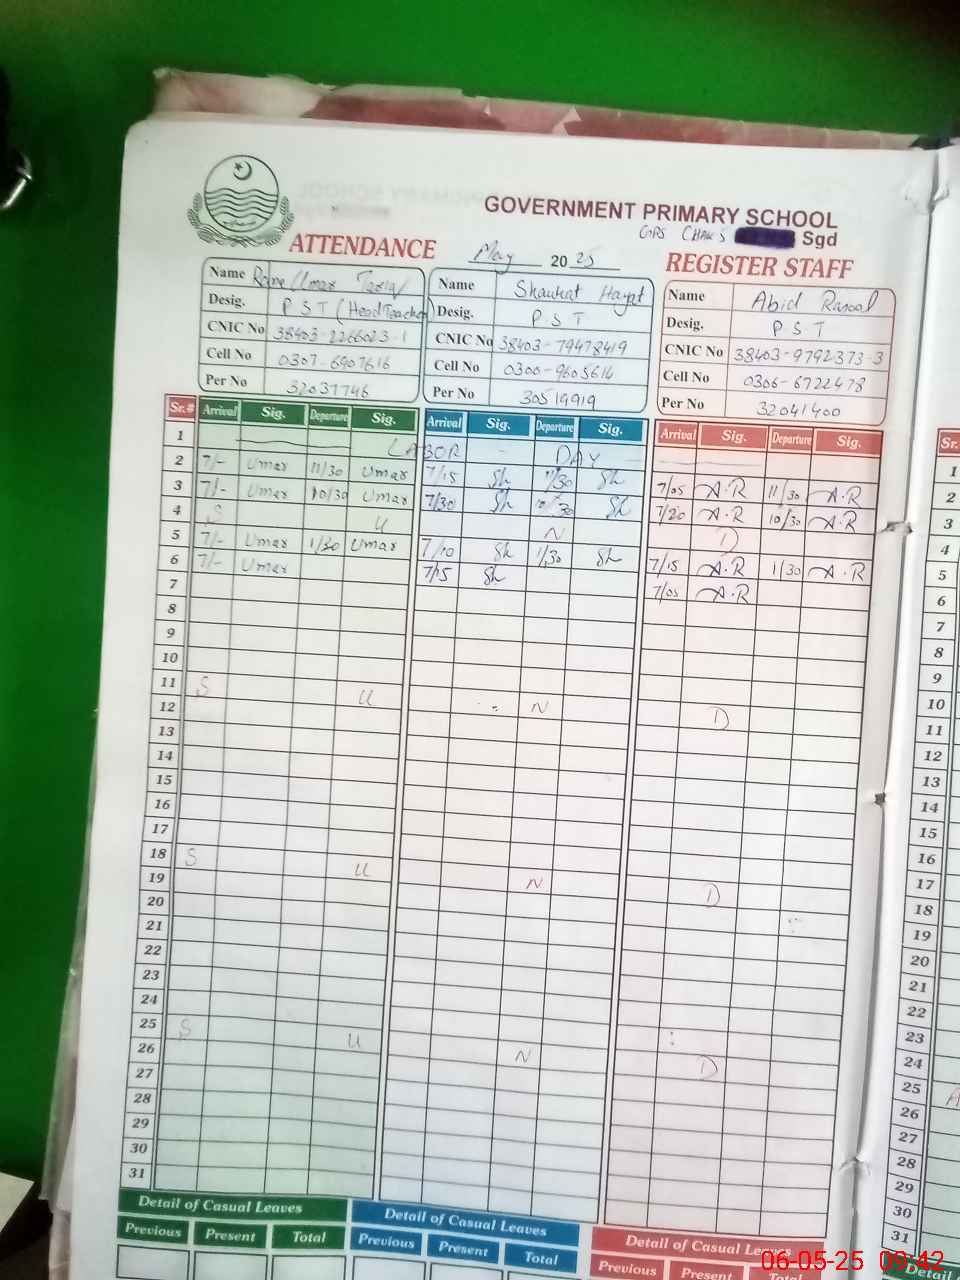 GOVERNMENT PRIMARY SCHOOL
GPS CHAK 5 Sgd
ATTENDANCE May 2025 REGISTER STAFF
Name Umar Name Shaukat Hayat Name Abid Rasool
Desig. P S T (Head Teacher) Desig. P S T Desig. P S T
CNIC No 38403-2266023-1 CNIC No 38403-79478419 CNIC No 38403-9792373-3
Cell No 0307-6907616 Cell No 0300-9605614 Cell No 0306-6722478
Per No 32037746 Per No 30519919 Per No 32041400
Sr.# Arrival Sig. Departure Sig. Arrival Sig. Departure Sig. Arrival Sig. Departure Sig. Sr.
1 LABOR DAY 1
2 7/- Umar 11/30 Umar 7/15 Sh 11/30 Sh 7/05 A.R 11/30 A.R 2
3 7/- Umar 10/30 Umar 7/30 Sh 10/30 Sh 7/20 A.R 10/30 A.R 3
4 S U N D 4
5 7/- Umar 1/30 Umar 7/10 Sh 1/30 Sh 7/15 A.R 1/30 A.R 5
6 7/- Umar 7/15 Sh 7/05 A.R 6
7 7
8 8
9 9
10 10
11 S U N D 11
12 12
13 13
14 14
15 15
16 16
17 17
18 S U N D 18
19 19
20 20
21 21
22 22
23 23
24 24
25 S U N D 25
26 26
27 27
28 28
29 29
30 30
31 31
Detail of Casual Leaves Detail of Casual Leaves Detail of Casual Leaves Detail
Previous Present Total Previous Present Total Previous Present Total
06-05-25 09:42